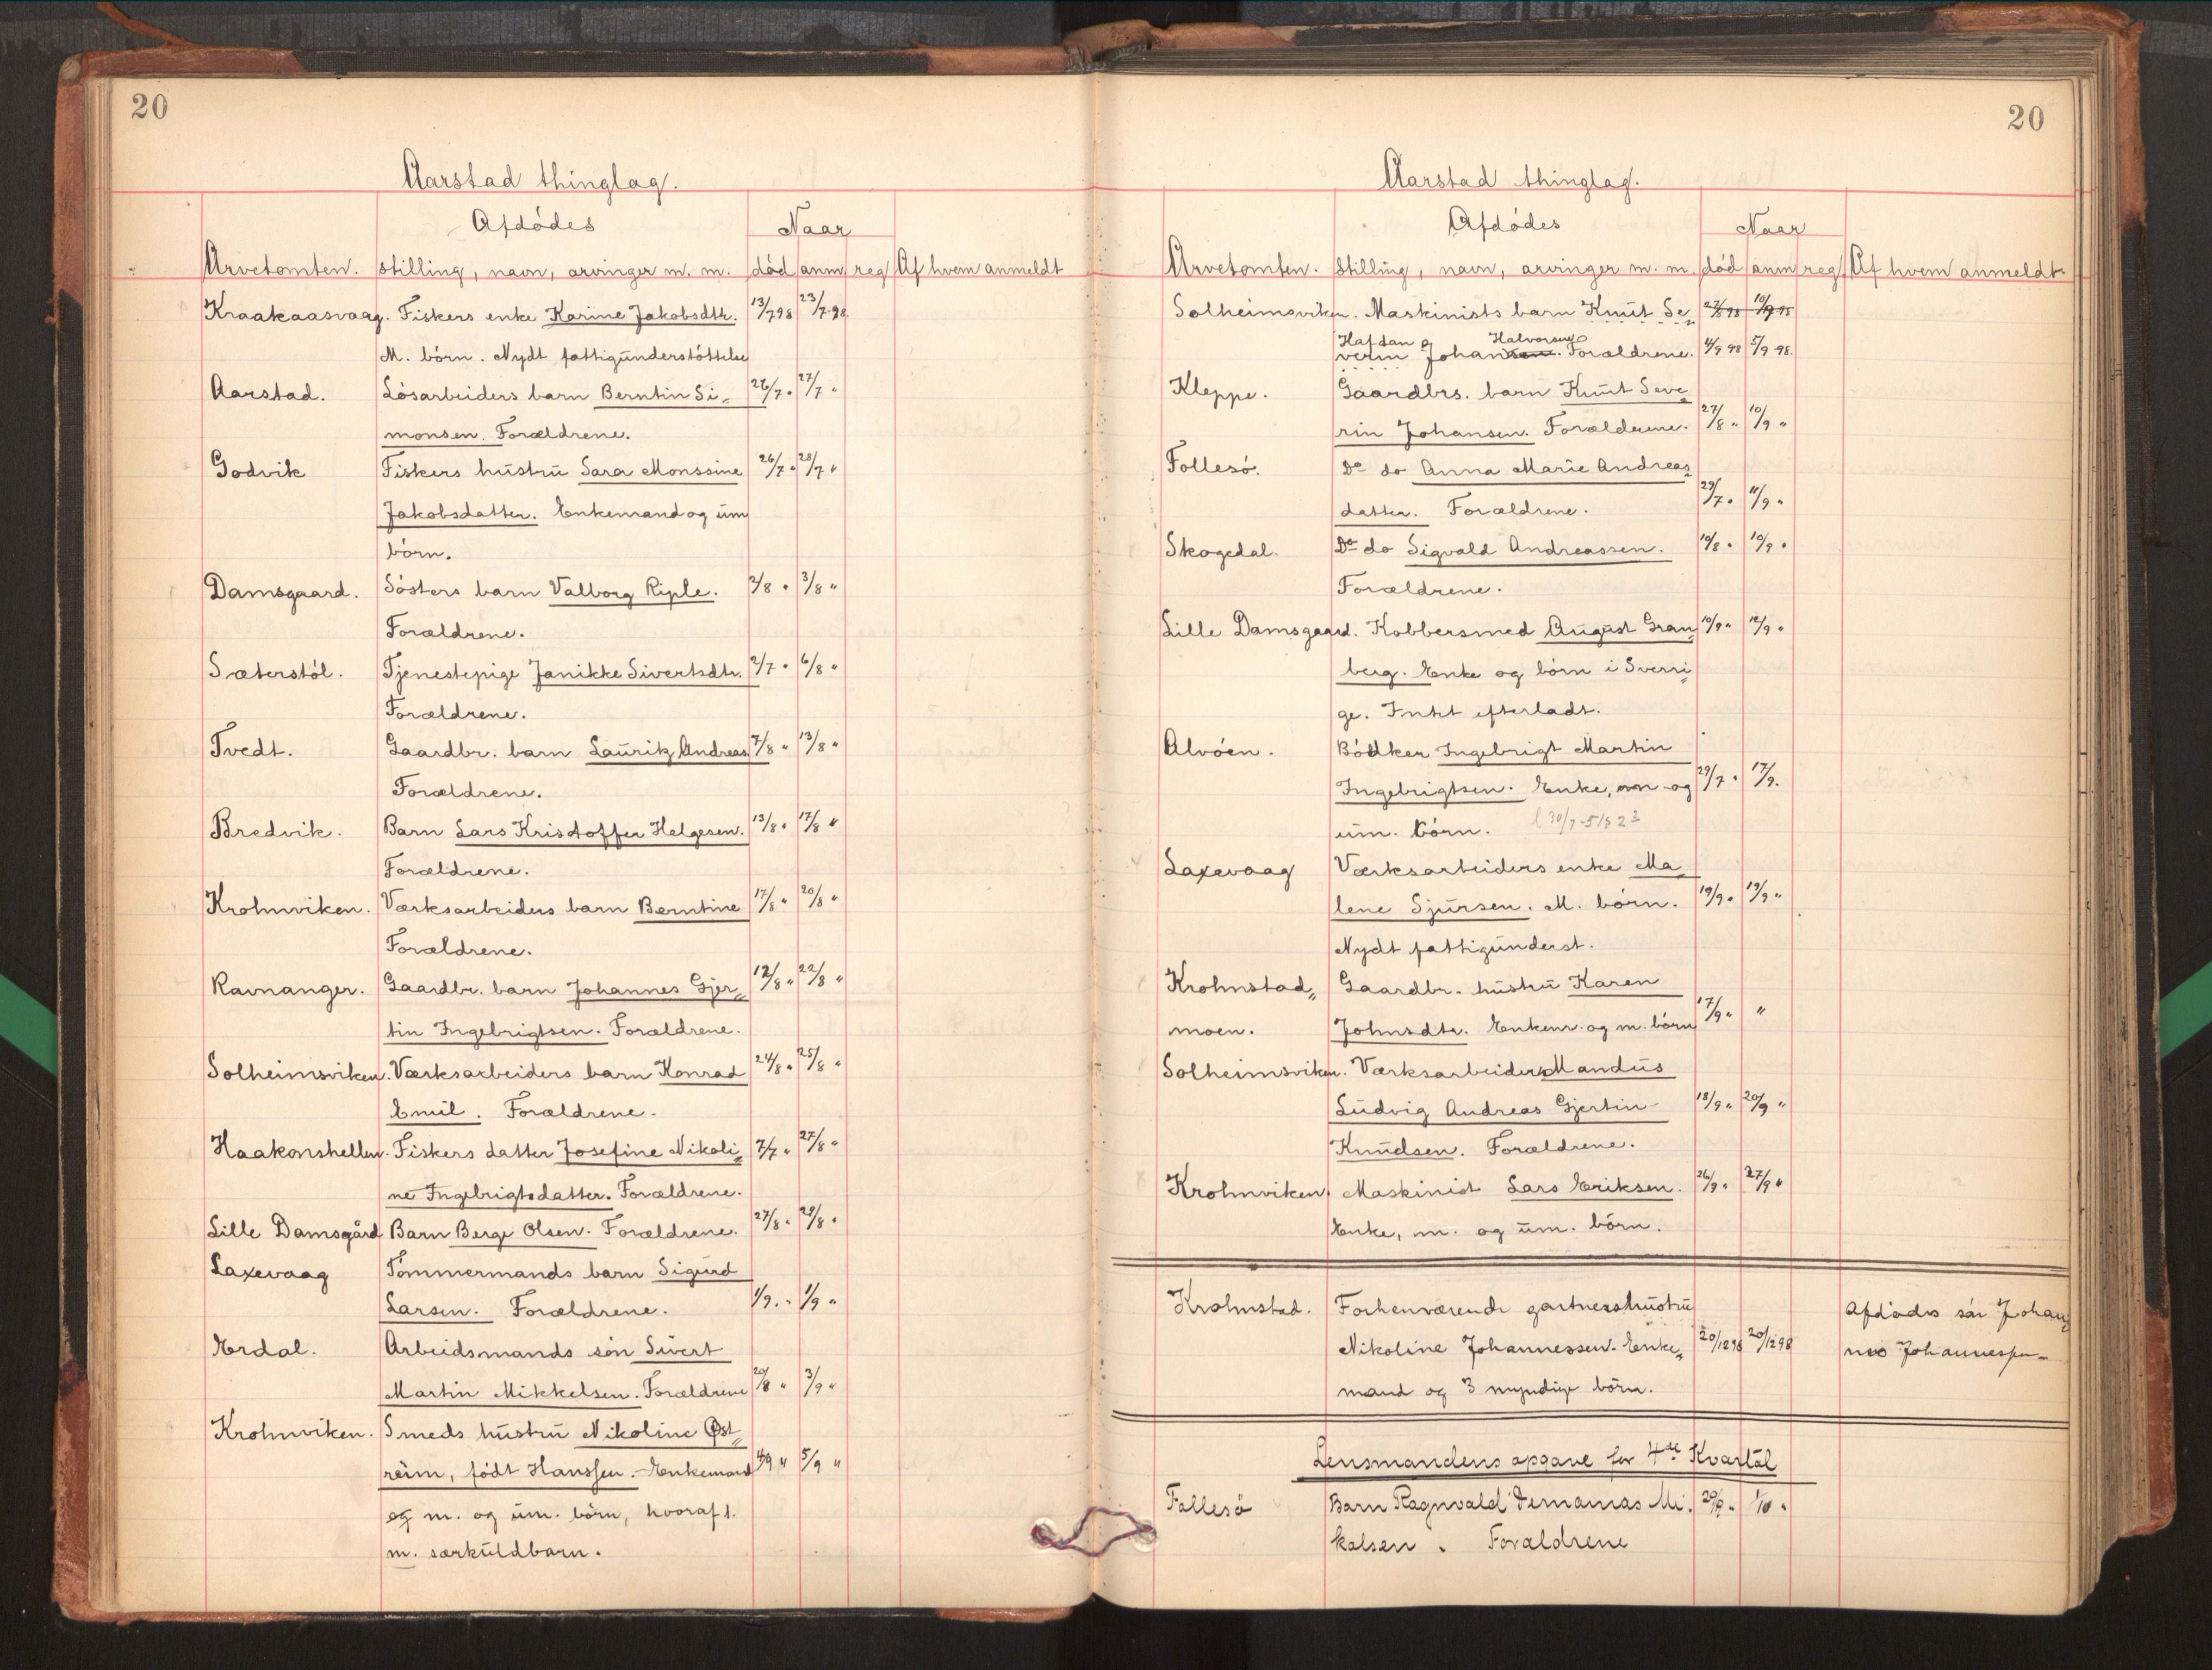 20
Aarstad thinglag.
Afdödes
Naar
Arvetomten. stilling, navn, arvinger m. m. död anm. reg Af hvem anmeldt
Kraakaasvaag. Fiskers enke Karine Jakobsdtr. 13/7 98 23/7 98
M. börn. Nydt fattigunderstöttelse
Aarstad. Lösarbeiders barn Berntin Si- 26/7 " 27/7 "
monsen. Forældrene.
Godvik Fiskers hustru Sara Monssine 26/7 " 28/7 "
Jakobsdatter. Enkemand og um
börn.
Damsgaard. Sösters barn Valborg Riple. 2/8 " 3/8 "
Forældrene.
Sæterstöl. Tjenestepige Janikke Sivertsdtr. 2/7 " 6/8 "
Forældrene.
Tvedt. Gaardbr. barn Lauritz Andreas 7/8 " 13/8 "
Forældrene.
Bredvik. Barn Lars Kristoffer Helgesen. 13/8 " 17/8 "
Forældrene.
Krohnviken. Værksarbeiders barn Berntine 17/8 " 20/8 "
Forældrene.
Ravnanger. Gaardbr. barn Johannes Gjer- 12/8 " 22/8 "
tin Ingebrigtsen. Forældrene.
Solheimsviken. Værksarbeiders barn Konrad 24/8 " 25/8 "
Emil. Forældrene.
Haakonshellen. Fiskers datter Josefine Nikoli- 7/7 " 27/8 "
ne Ingebrigtsdatter. Forældrene.
Lille Damsgård Barn Berge Olsen. Forældrene. 27/8 " 29/8 "
Laxevaag Tömmermands barn Sigurd
Larsen. Forældrene. 1/9 " 1/9 "
Erdal. Arbeidsmands sön Sivert
Martin Mikkelsen. Forældrene 20/8 " 3/9 "
Krohnviken. Smeds hustru Nikoline Öst-
reim, födt Hanssen. Enkemand 4/9 " 5/9 "
og m. og um. börn, hvoraf 1.
m. særkuldbarn.
20
Aarstad thinglag.
Afdödes
Naar
Arvetomten. Stilling, navn, arvinger m. m. död anm reg Af hvem anmeldt
Solheimsviken. Maskinists barn Knut Se- 27/8 98 10/9 98
Hafdan Halvorsens
verin Johansen. Forældrene. 4/9 98 5/9 98.
Kleppe. Gaardbrs. barn Knut Seve-
rin Johansen. Forældrene. 27/8 " 10/9 "
Follesö. Do do Anna Marie Andreas-
datter. Forældrene. 29/7 " 11/9 "
Skogedal. Do do Sigvald Andreassen. 10/8 " 10/9 "
Forældrene.
Lille Damsgaard. Kobbersmed August Gran- 10/9 " 12/9 "
berg. Enke og börn i Sverri-
ge. Intet efterladt.
Alvöen. Bödker Ingebrigt Martin
Ingebrigtsen. Enke, m og 29/7 " 17/9.
um. börn.
Laxevaag Værksarbeiders enke Ma-
lene Sjursen. M. börn. 19/9 " 19/9 "
Nydt fattigunderst.
Krohnstad- Gaardbr. hustru Karen
moen. Johnsdtr. Enkem. og m. börn 17/9 " "
Solheimsviken. Værksarbeider Mandus
Ludvig Andreas Gjertin 18/9 " 20/9 "
Knudsen. Forældrene.
Krohnviken. Maskinist Lars Eriksen. 26/9 " 27/9 "
Enke, m. og um. börn.
Krohnstad. Forhenværende gartnershustru Afdødes sön Johan-
Nikoline Johannessen. Enke- 20/12 98 20/12 98 nes Johannessen
mand og 3 myndige börn.
Lensmandens opgave for 4de Kvartal
Follesö Barn Ragnvald Mi- 20/9 " 1/10 "
kalsen. Forældrene